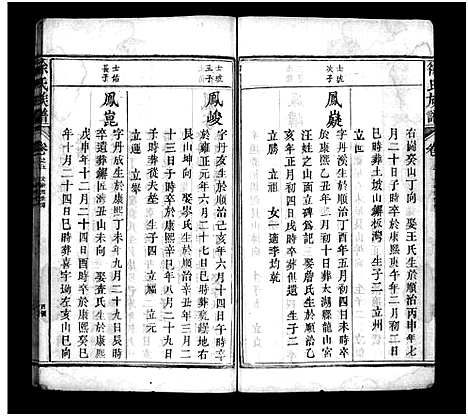 徐氏族譜
右園癸山丁向 娶王氏生於順治丙申年七
月二十日子時卒於康熙庚午年二月初三日
巳時葬土坡山獅板灣 生子二 立州
立
士
次子
鳳嶷
字玉生於順治丁酉年五月初四日未時
卒於康熙乙丑年三月初十日葬太湖縣龍山宮
汪姓山左面立碑爲記 娶詹氏生於順治
年 正月初四日戌時 生子二
立勝 立祖 女一適李均乾
士
三子
鳳峻
字丹亥生於順治己亥年六月十四日午時卒
於雍正元年六月二十七日巳時葬
癸山 向 娶宋氏生於順治辛丑年三月二
十三日子時卒於康熙辛巳年八月二十九
子時葬從夫塋 生子四 立元
立 立譽
士
長子
鳳崑
字丹成生於康熙丁未年九月二十九日
卒 遺葬獅 丑山未向 娶查氏生於康熙
戊申年十二月二十四日酉時卒於康熙癸巳
年十月二十四日巳時葬 亥山巳向
徐氏族譜
卷之五